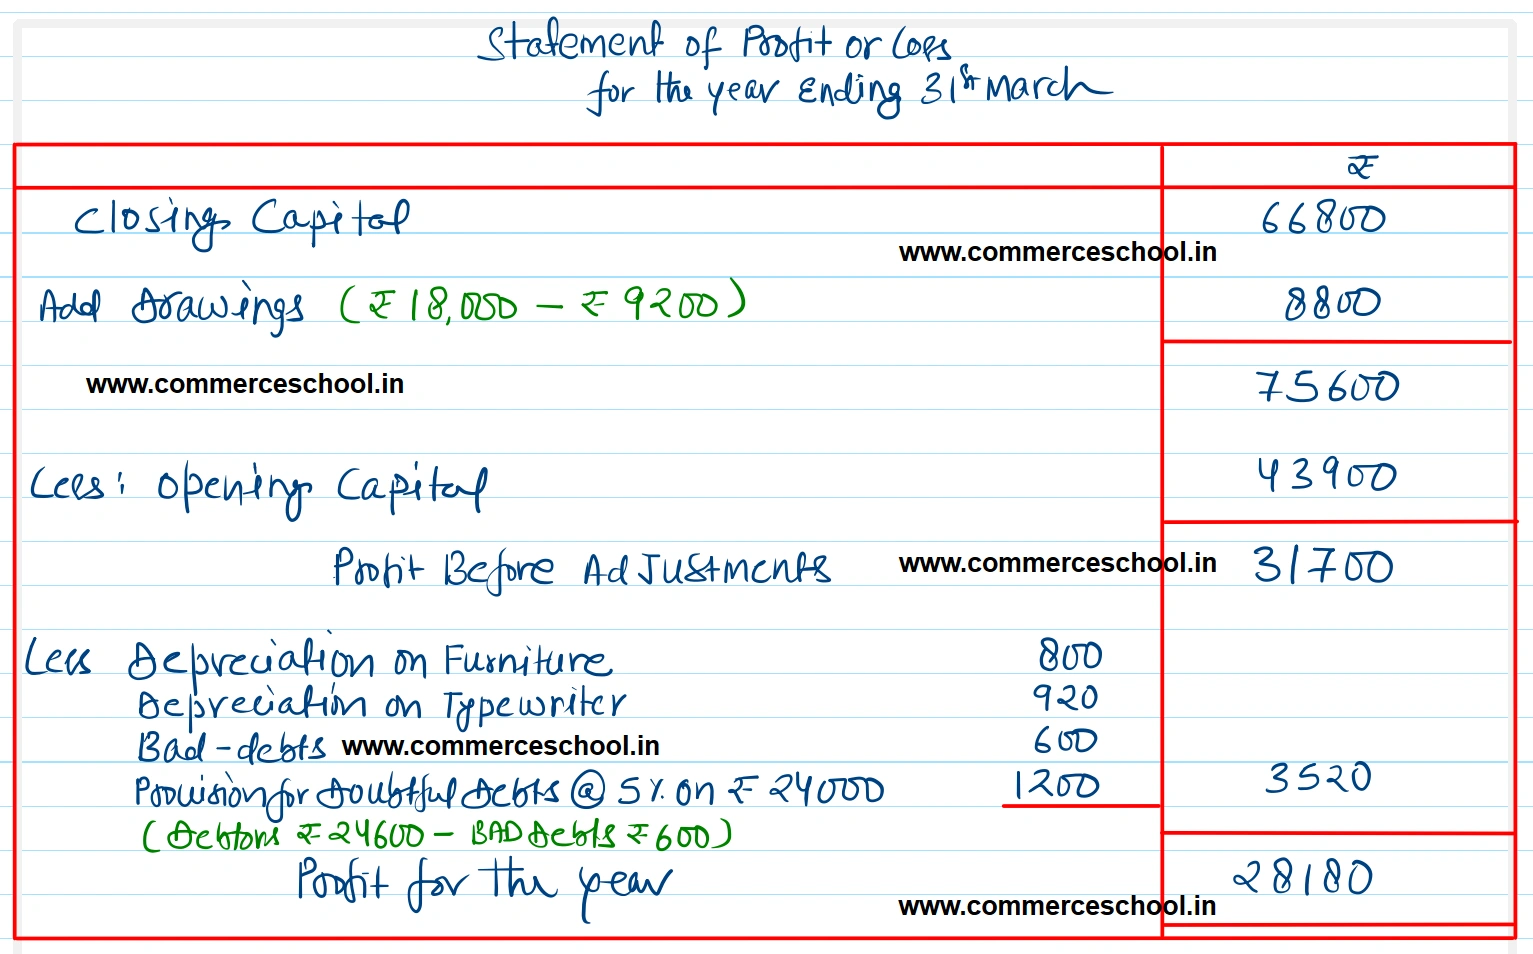 Statement of Profit or Loss
for the year Ending 31st March
₹
Closing Capital 66800
www.commerceschool.in
Add Drawings (₹18,000 - ₹9200) 8800
www.commerceschool.in 75600
Less: Opening Capital 43900
Profit Before AdJustments www.commerceschool.in 31700
Less Depreciation on Furniture 800
Depreciation on Typewriter 920
Bad-debts www.commerceschool.in 600
Provision for Doubtful Debts @ 5% on ₹24000 1200 3520
(Debtors ₹24600 - BAD Debts ₹600)
Profit for the year 28180
www.commerceschool.in